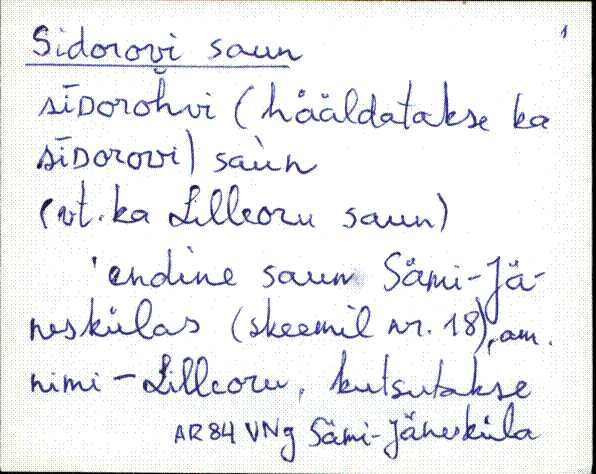 1
Sidorovi saun
sīDorŏhvi (hääldatakse ka
sīDorovi) saùn
(vt. ka Lilleoru saun)
'endine saun Sämi-Jä-
neskülas (skeemil nr. 18), am.
nimi - Lilleoru, kutsutakse
AR84 VNg Sämi-Jäneskula